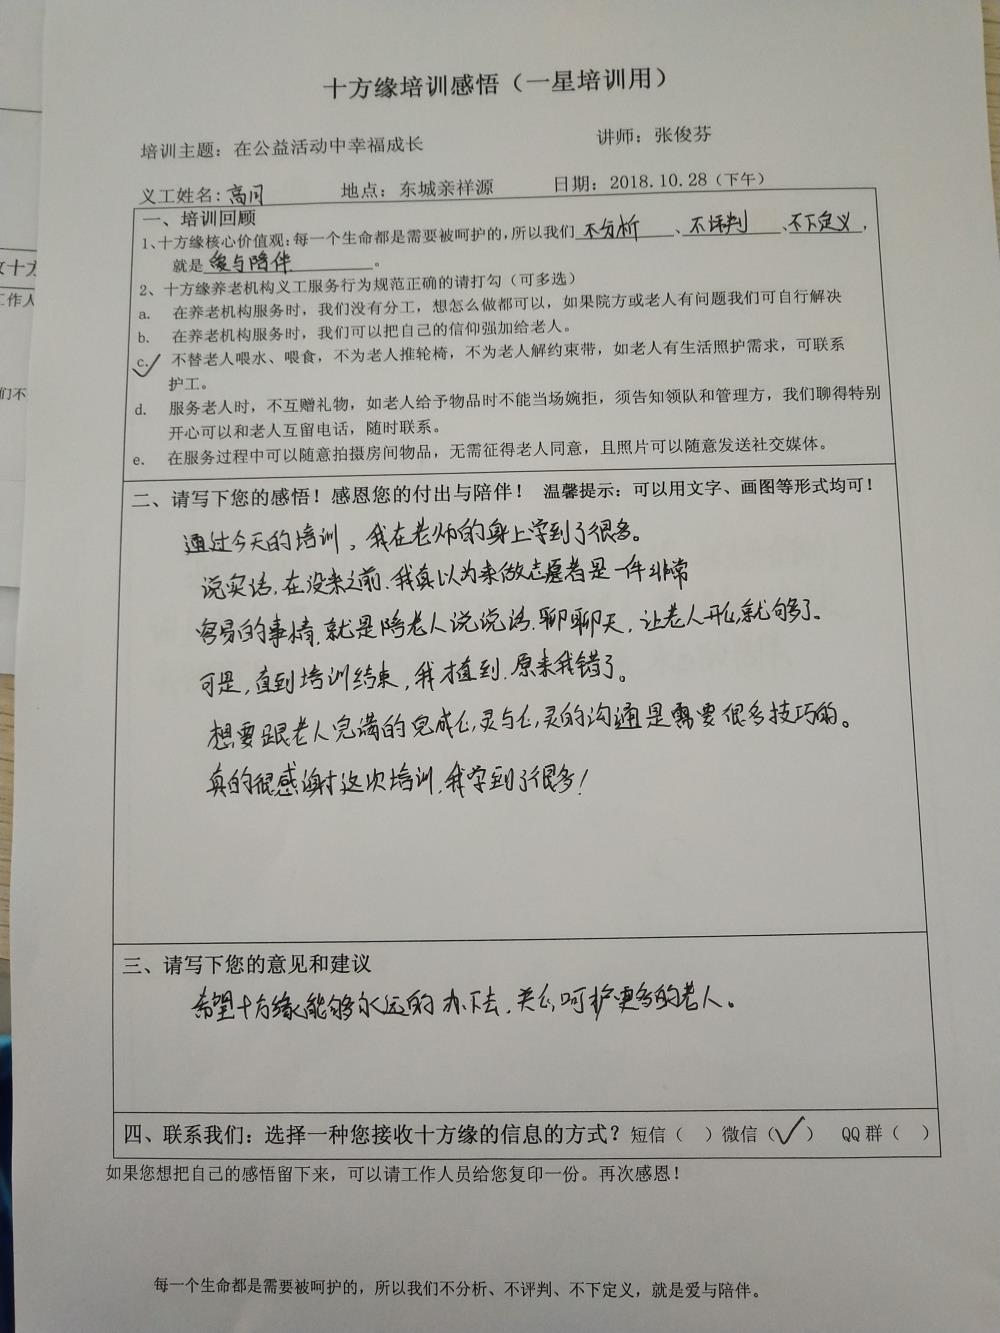 十方缘培训感悟（一星培训用）
培训主题：在公益活动中幸福成长 讲师：张俊芬
义工姓名：高闪 地点：东城亲祥源 日期：2018.10.28（下午）
一、培训回顾
1、十方缘核心价值观：每一个生命都是需要被呵护的，所以我们不分析、不评判、不下定义，
就是爱与陪伴。
2、十方缘养老机构义工服务行为规范正确的请打勾（可多选）
a. 在养老机构服务时，我们没有分工，想怎么做都可以，如果院方或老人有问题我们可自行解决
b. 在养老机构服务时，我们可以把自己的信仰强加给老人。
c. 不替老人喂水、喂食，不为老人推轮椅，不为老人解约束带，如老人有生活照护需求，可联系
护工。
d. 服务老人时，不互赠礼物，如老人给予物品时不能当场婉拒，须告知领队和管理方，我们聊得特别
开心可以和老人互留电话，随时联系。
e. 在服务过程中可以随意拍摄房间物品，无需征得老人同意，且照片可以随意发送社交媒体。
二、请写下您的感悟！感恩您的付出与陪伴！ 温馨提示：可以用文字、画图等形式均可！
通过今天的培训，我在老师的身上学到了很多。
说实话，在没来之前，我真以为来做志愿者是一件非常
容易的事情，就是陪老人说说话，聊聊天，让老人开心就够了。
可是，直到培训结束，我才直到，原来我错了。
想要跟老人完满的完成心灵与心灵的沟通是需要很多技巧的。
真的很感谢这次培训，我学到了很多！
三、请写下您的意见和建议
希望十方缘能够永远的办下去，关心呵护更多的老人。
四、联系我们：选择一种您接收十方缘的信息的方式？短信（ ）微信（✓） QQ群（ ）
如果您想把自己的感悟留下来，可以请工作人员给您复印一份。再次感恩！
每一个生命都是需要被呵护的，所以我们不分析、不评判、不下定义，就是爱与陪伴。